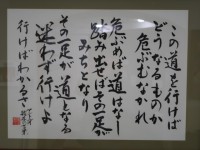 この道を行けば
どうなるものか
危ぶむなかれ
危ぶめば道はなし
踏み出せばその一足が
みちとなり
その足が道となる
迷わず行けよ
行けばわかるさ